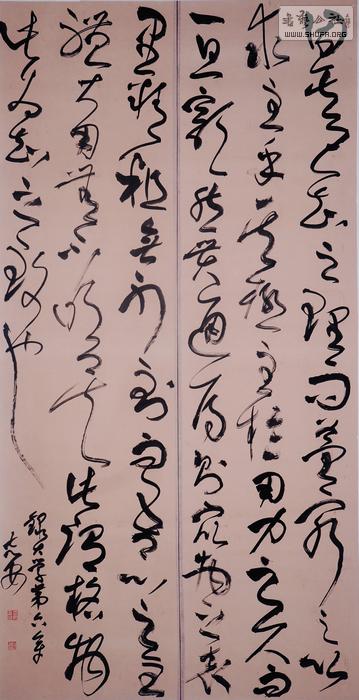 因其已知之理而益窮之以
求至乎其極至於用力之久而
一旦豁然貫通焉則眾物之表
里精粗無不到而吾心之全
體大用無不明矣此謂格物
此謂知之致也
錄大學第六章
WWW.SHUFA.ORG